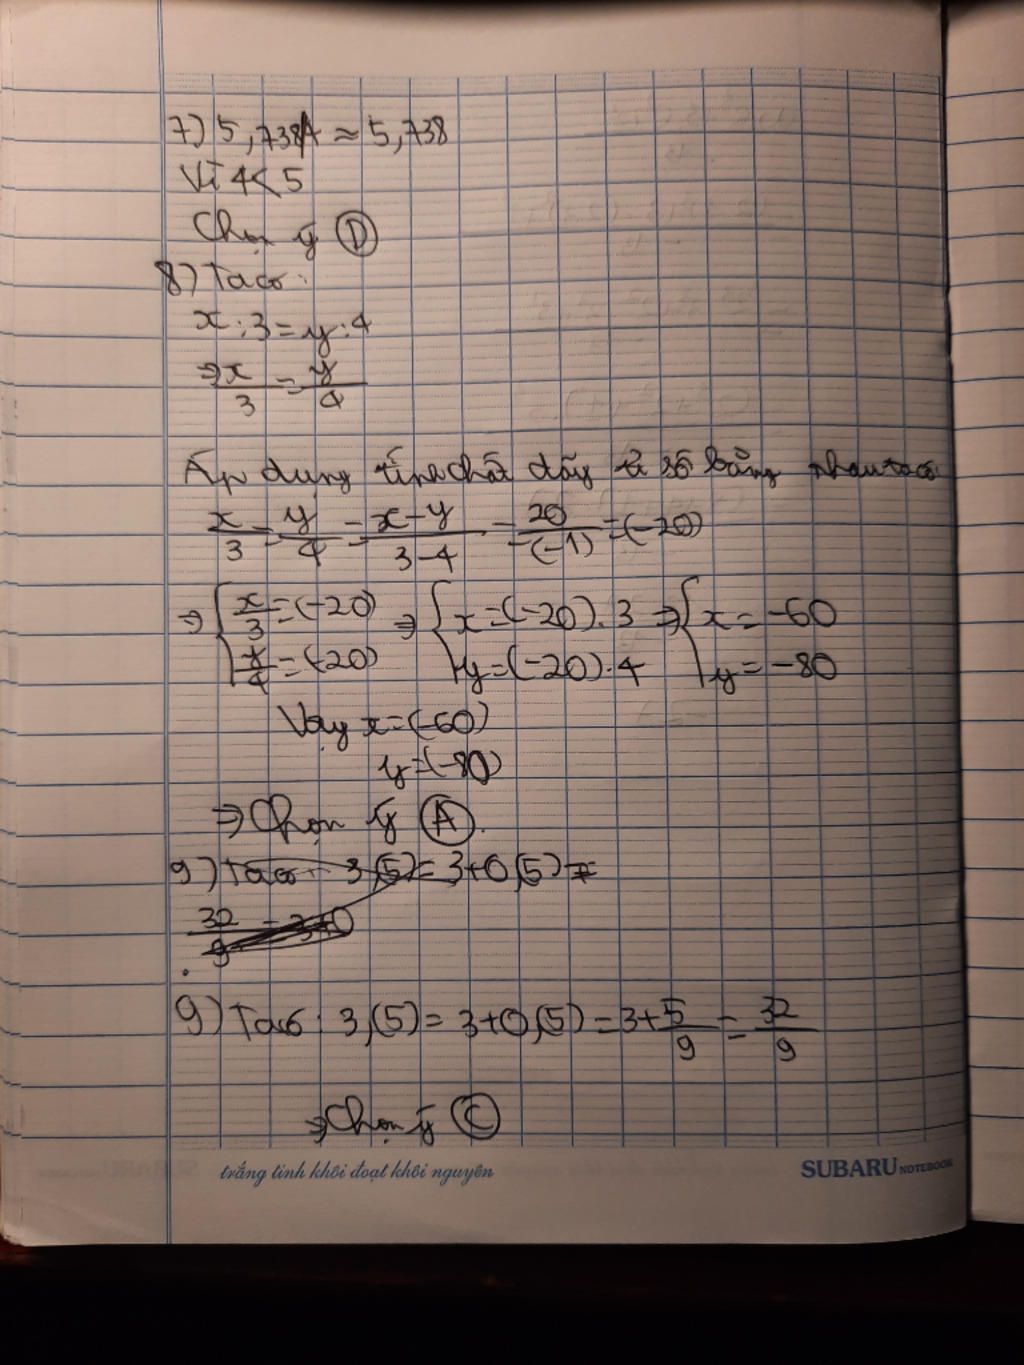 7) 5,7384 ≈ 5,738
Vì 4 < 5
Chọn ý D
8) Ta có:
x : 3 = y : 4
⇒ x/3 = y/4
Áp dụng tính chất dãy tỉ số bằng nhau ta có
x/3 = y/4 = x-y/3-4 = 20/-(-1) = (-20)
⇒ { x/3 = (-20) ⇒ { x = (-20) . 3 ⇒ { x = -60
y/4 = (-20) y = (-20) . 4 y = -80
Vậy x = (-60)
y = (-80)
⇒ Chọn ý A.
9) Ta có: 3,(5) = 3+0,(5) =
32/9 = 3+0
9) Ta có: 3,(5) = 3+0,(5) = 3+5/9 = 32/9
⇒ Chọn ý C
trắng tinh khôi đoạt khôi nguyên
SUBARU NOTEBOOK